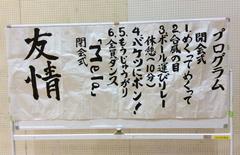 プログラム
開会式
1.めくってめくって
2.台風の目
3.ボール運びリレー
休憩(10分)
4.バケツにホン!
5.もうじゅうがり
6.全員ダンス
「Mela!」
閉会式
友情